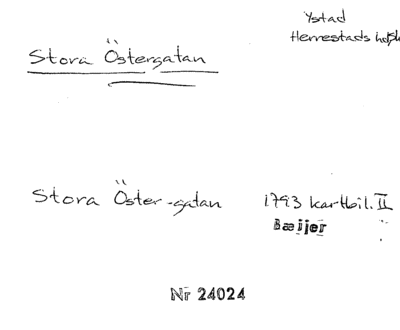 Ystad
Herrestads hd
Stora Östergatan
Stora Öster-gatan 1793 kartbil. II
Bæijer
Nr 24024